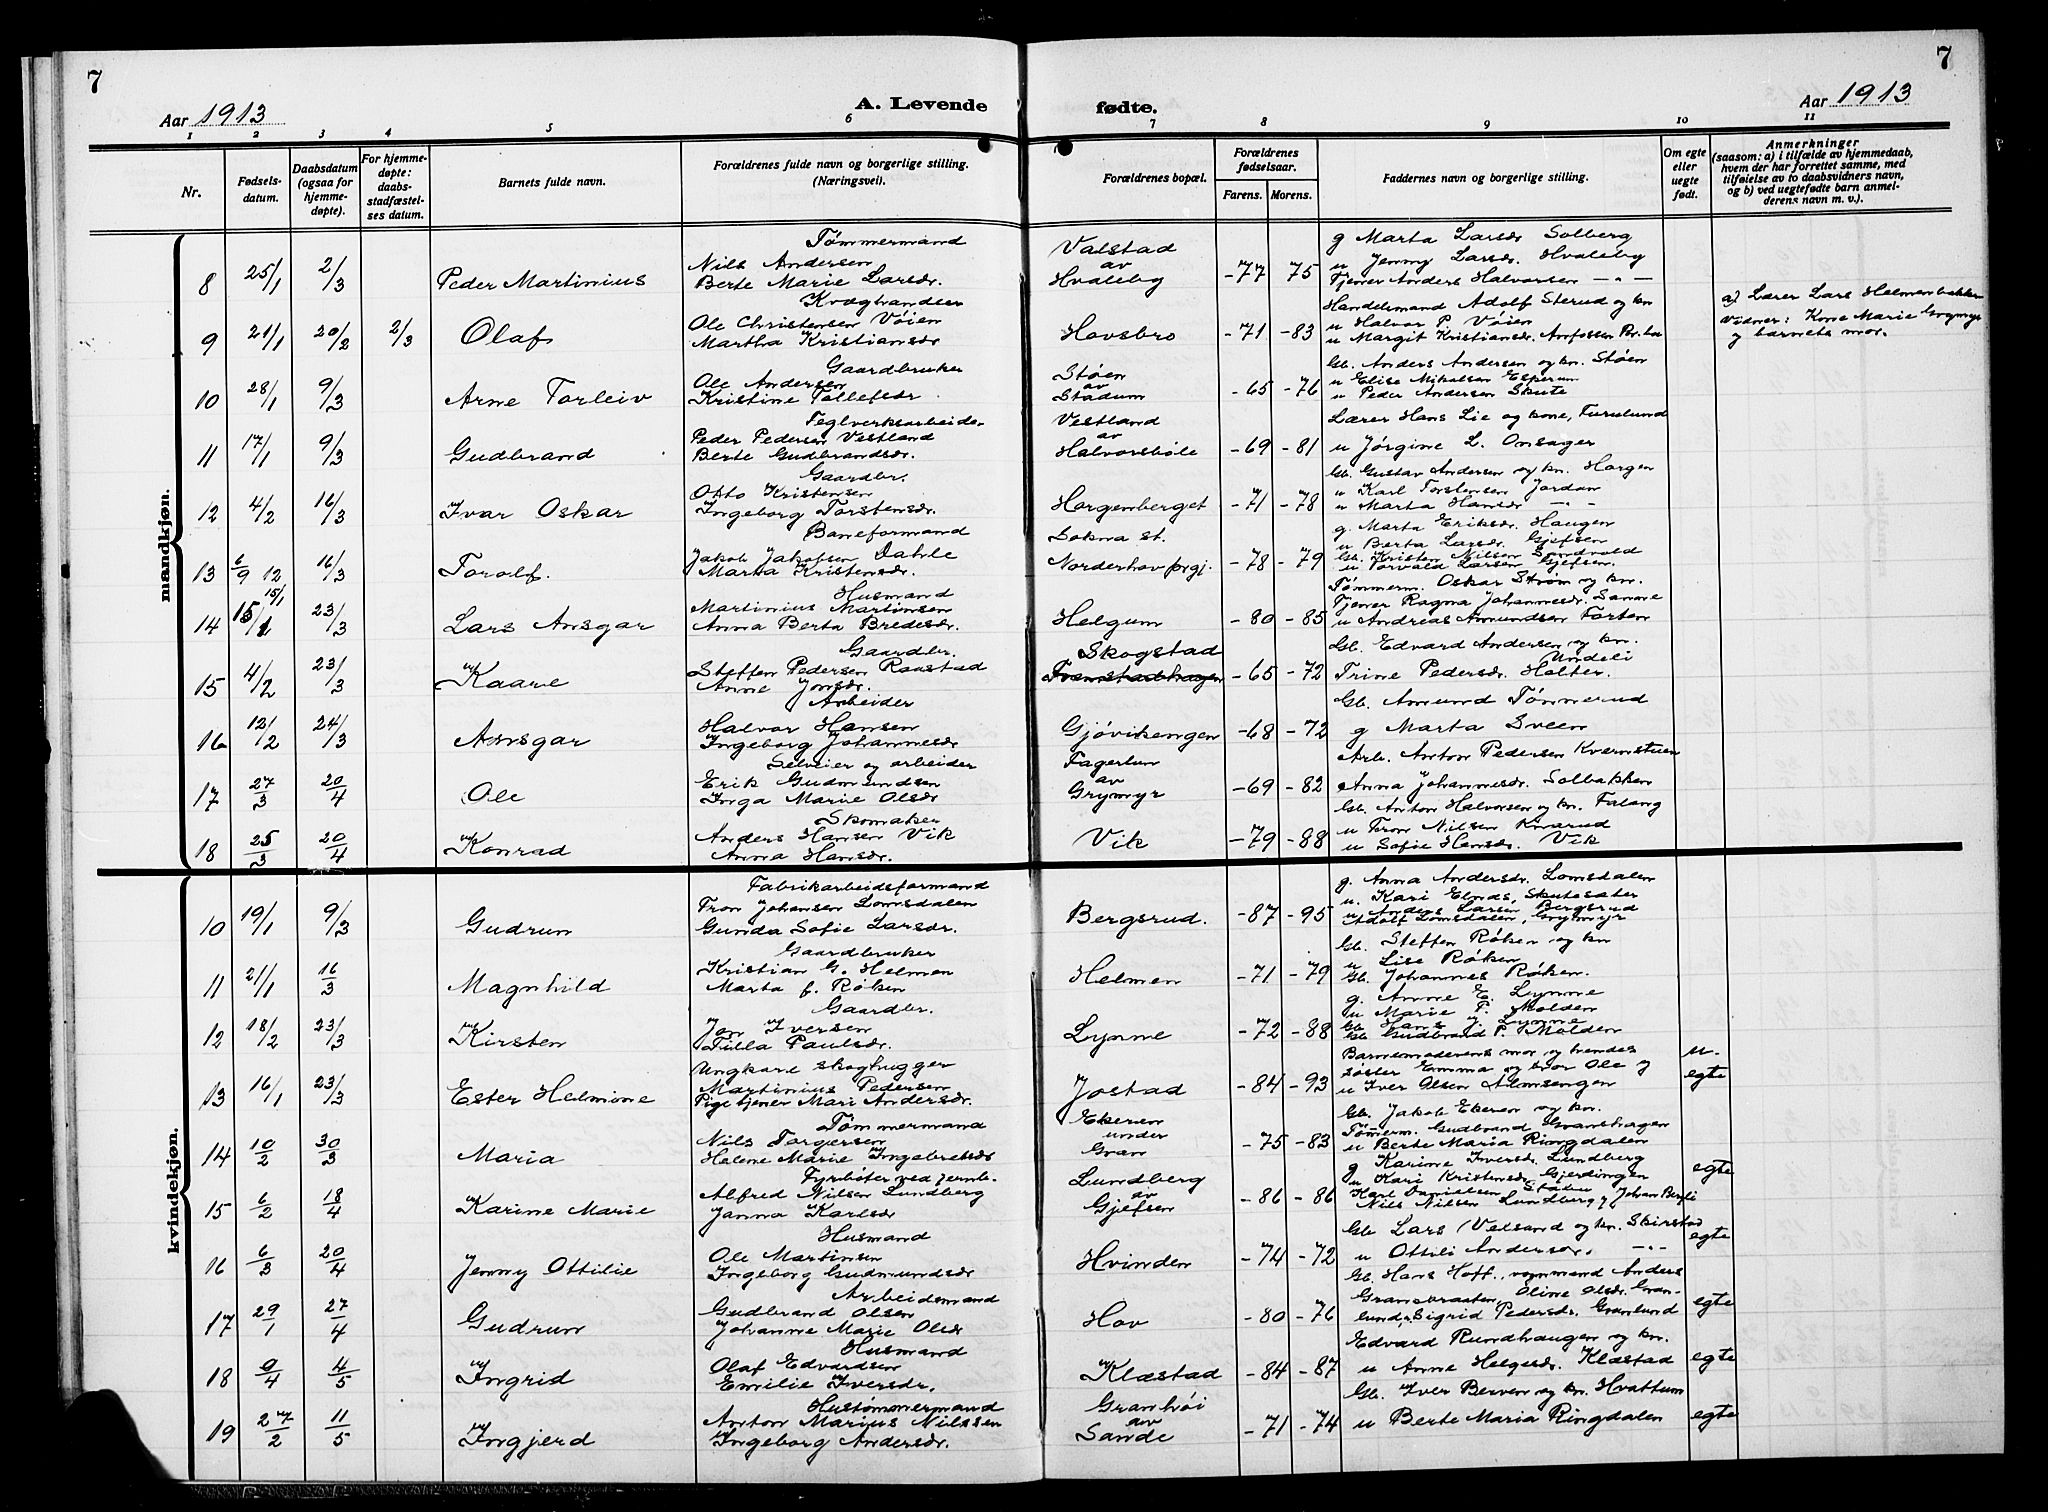 7
7
Aar 1913
A. Levende
fødte.
Aar 1913
1 2 3 4 5 6 7 8 9 10 11
Nr.
Fødsels-
datum.
Daabsdatum
(ogsaa for
hjemme-
døpte).
For hjemme-
døpte:
daabs-
stadfæstel-
ses datum.
Barnets fulde navn.
Forældrenes fulde navn og borgerlige stilling.
(Næringsvei).
Forældrenes bopæl.
Forældrenes
fødselsaar.
Farens. Morens.
Faddernes navn og borgerlige stilling.
Om egte
eller
uegte
født.
Anmerkninger
(saasom: a) i tilfælde av hjemmedaab,
hvem der har forrettet samme, med
tilføielse av to daabsvidners navn,
og b) ved uegtefødte barn anmel-
derens navn m. v.).
mandkjøn.
Tømmermand Valstad g Marta Larsdr Solberg
Nils Andersen av u Jenny Larsdr. Hvaleby
8 25/1 2/3 Peder Martinius Berte Marie Larsdr. Hvaleby -77 75 Tjener Anders Halvorsen -"-
Kvæghandler Handelsmand Adolf Sterud og kn a) Lærer Lars Helmenbakken
Ole Christensen Vøien u Halvor P. Vøien Vidner: Kone Marie Grymyr
9 21/1 20/2 2/3 Olaf Martha Kristiansdr Hovsbro -71 -83 u Margit Kristiansdr. og barnets mor.
Gaardbruker Støen Gb. Anders Andersen og kn. Støen
Ole Andersen av u Elise Mikalsen
10 28/1 9/3 Arne Torleiv Kristine Tollefsdr. Stadum -65 -76 u Peder Andersen Skute
Teglverksarbeider Vestland Lærer Hans Lie og kone, Furulund
Peder Pedersen Vestland av
11 17/1 9/3 Gudbrand Berte Gudbrandsdr. Halvorsbøle -69 -81 u Jørgine L. Onsager
Gaardbr. Gb. Gustav Andersen og kn. Horgen
Otto Kristensen u Karl Torstensen Jordan
12 4/2 16/3 Ivar Oskar Ingeborg Torstensdr. Horgenberget -71 -78 u Marta Hansdr -"-
Baneformand Sokna st. g Marta Eriksdr. Haugen
u Berta Larsdr. Gjefsen
Jakob Jakobsen Dahle Gb. Kristen Nilsen Sandvold
13 6/9 12 16/3 Torolf. Marta Kristensdr. Norderhov prgj. -78 -79 u Torvald Larsen Gjefsen.
15/1 Husmand Tømmerm. Oskar Strøm og kn.
Martinius Martinsen Tjener Ragna Johannesdr. Sanne
14 15/1 23/3 Lars Ansgar Anna Berta Bredesdr. Helgum -80 -85 u Andreas Amundsen Forten
Gaardbr. Skogstad Gb. Edvard Andersen og kn.
Steffen Pedersen Raastad Undeli
15 4/2 23/3 Kaare Anne Jonsdr. Tvemstadhagen -65 -72 Trine Pedersdr. Holter.
Arbeider Gb. Amund Tømmerud
Halvor Hansen
16 12/2 24/3 Ansgar Ingeborg Johannesdr Gjøvikengen -68 -72 g Marta Sveen
Selveier og arbeider Fagertun Arb. Anton Pedersen Kvernstuen
Erik Gudmundsen av
17 27/3 20/4 Ole Inga Marie Olsdr Grymyr -69 -82 Anna Johannesdr. Solbakken
Skomaker Gb. Anton Halvorsen og kn. Falang
Anders Hansen Vik u Tron Nilsen Knarud
18 25/3 20/4 Konrad Anna Hansdr. Vik -79 -88 u Sofie Hansdr. Vik
kvindekjøn.
Fabrikarbeidsformand g. Anna Andersdr. Lomsdalen
Tron Johansen Lomsdalen u. Kari Skutesæter
u Anders Larsen Bergsrud
10 19/1 9/3 Gudrun Gunda Sofie Larsdr. Bergsrud. -87 -95 Adolf Lomsdalen, Grymyr
Gaardbruker Gb. Steffen Røken og kn
Kristian G. Helmen u Lise Røken
11 21/1 16/3 Magnhild Marta f. Røken Helmen -71 -79 Gb. Johannes Røken.
Gaardbr. g. Anne E. Lynne
Jon Iversen u Marie P. Molden
Gb Hans J. Lynne
12 18/2 23/3 Kirsten Tilla Paulsdr. Lynne -72 -88 Gb Gudbrand P. Molden
Ungkare skoghugger Barnemoderens mor og hendes u-
Martinius Pedersen søster Emma og bror Ole og egte
13 16/1 23/3 Ester Helmine Pige tjener Mari Andersdr. Jostad -84 -93 u Iver Olsen Almsengen
Tømmermand Ekeren Gb. Jakob Ekeren og kn.
Nils Torgersen under Tømerm. Gudbrand Granshagen
14 10/2 30/3 Maria Helene Marie Ingebretsdr Gran -75 -83 u Berte Maria Ringdalen
Fyrbøter ved jernb. Lundberg g Karine Iversdr. Lundberg egte
Alfred Nilsen Lundberg av u Kari Kristensdr. Gjerdingen
Karl Danielsen Staden
15 6/2 18/4 Karine Marie Janna Karlsdr Gjefsen -86 -86 Nils Nilsen Lundberg og Johan
Husmand Gb Lars Velsand og kn. Skirstad
Ole Martinsen egte
16 6/3 20/4 Jenny Ottilie Ingeborg Gudmundsdr Hvinden -74 -72 u Ottili Andersdr. -"-
Arbeidsmand Gb. Hans Hoff, Anders
Gudbrand Olsen Oline Olsdr. Gran- egte
17 29/1 27/4 Gudrun Johanne Marie Olsdr Hov -80 -76 lund, Sigrid Pedersdr. Granlund
Husmand Edvard Rundhaugen og kn.
Olaf Edvardsen egte
18 9/4 4/5 Ingrid Emilie Iversdr. Klæstad -84 -87 u Anne Helgesdr. Klæstad
Hustømmermand Granhøi Gb. Iver Berven og kn. Hvattum
Anton Marius Nilssen av egte
19 27/2 11/5 Ingjerd Ingeborg Andersdr. Sande -71 -74 u Berte Maria Ringdalen